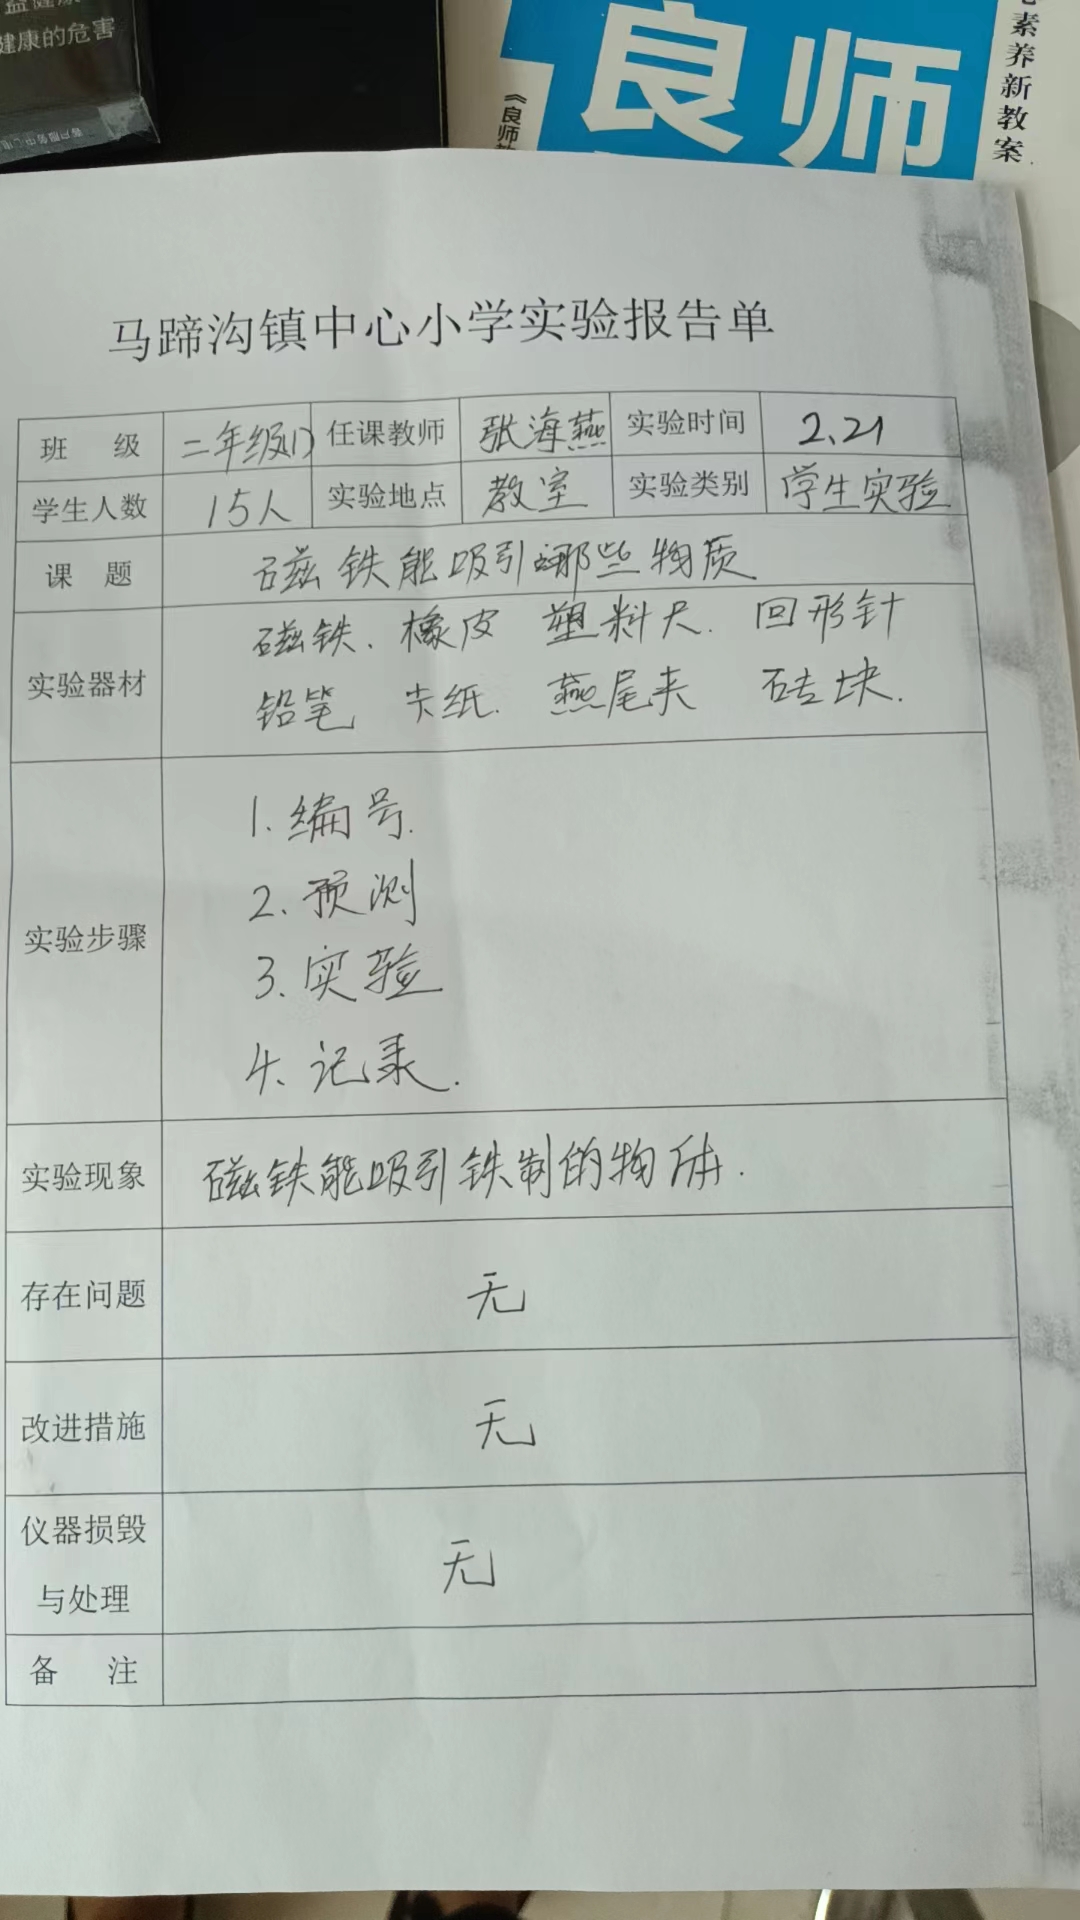 健康的危害
良师
素养新教案
马蹄沟镇中心小学实验报告单
班 级 二年级(1) 任课教师 张海燕 实验时间 2.21
学生人数 15人 实验地点 教室 实验类别 学生实验
课 题 磁铁能吸引哪些物质
实验器材 磁铁. 橡皮 塑料尺. 回形针
铅笔 卡纸. 燕尾夹 砖块.
实验步骤
1. 编号.
2. 预测
3. 实验
4. 记录.
实验现象 磁铁能吸引铁制的物体.
存在问题 无
改进措施 无
仪器损毁
与处理 无
备 注